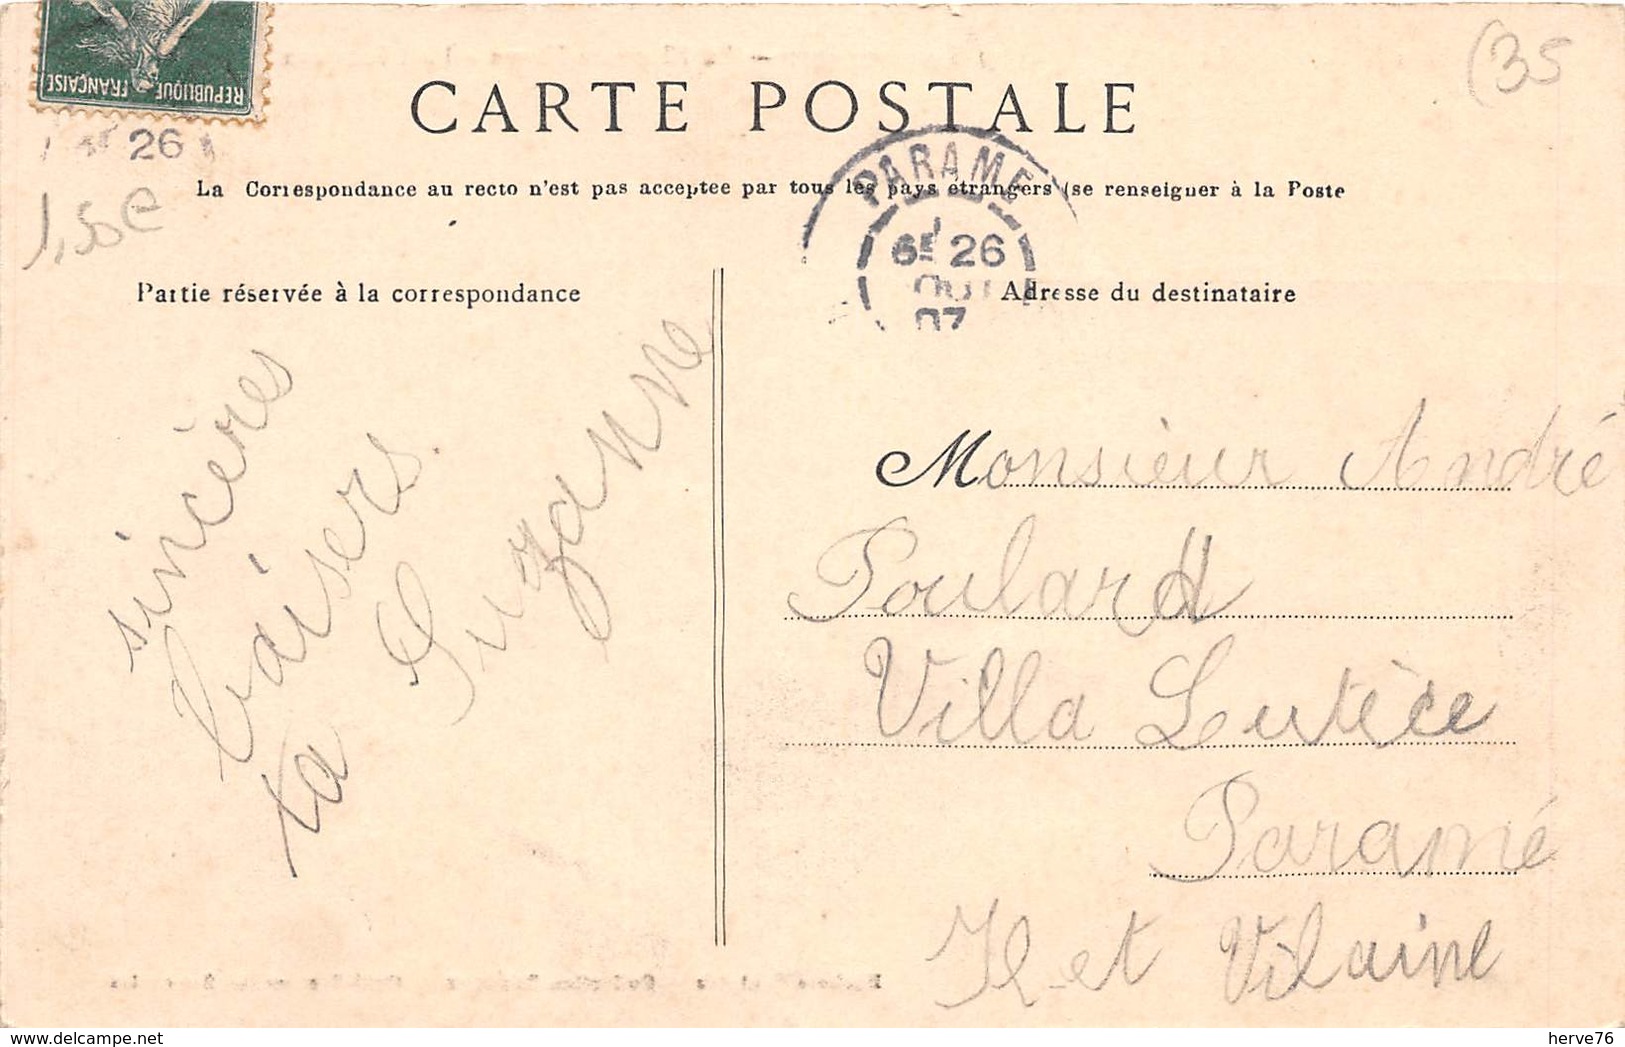 REPUBLIQUE FRANÇAISE
(35
CARTE POSTALE
26
1,50€
La Correspondance au recto n'est pas acceptee par tous les pays étrangers (se renseigner à la Poste
PARAME
6E 26
07
Partie réservée à la correspondance
sincères
baisers
ta Suzanne
Adresse du destinataire
Monsieur André
Poulard
Villa Lutèce
Paramé
Il et Vilaine
herve76